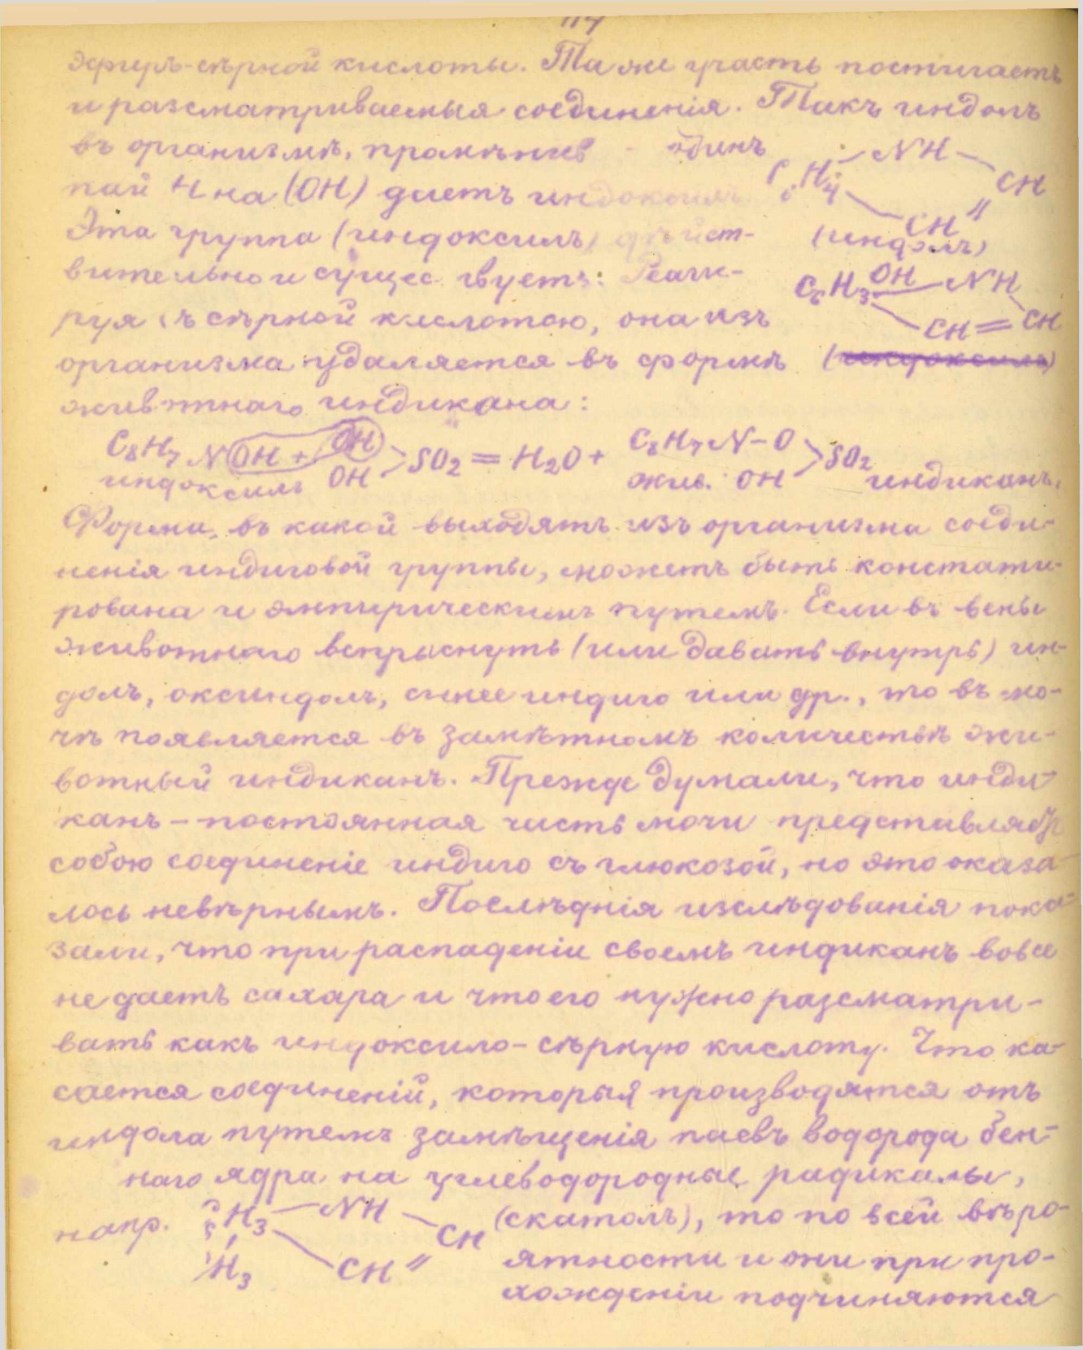 117
эфиръ-сѣрной кислоты. Та же участь постигаетъ
и разсматриваемыя соединенія. Такъ индолъ
въ организмѣ, промѣнив один
пай H на (OH) даетъ индоксилъ
C6H4 — NH — CH
CH
Эта группа (индоксилъ) дѣйст-
(индолъ)
вительно и сущес твуетъ: Реаги-
C6H3 OH — NH
CH = CH
руя съ сѣрной кислотою, она изъ
организма удаляется въ формѣ
(индоксилъ)
животнаго индикана:
C8H7 N OH + OH OH > SO2 = H2O + C8H7 N–O OH > SO2
индоксилъ жив. индиканъ.
Форма, въ какой выходятъ изъ организма соеди-
ненія индиговой группы, можетъ быть констати-
рована и эмпирическимъ путемъ. Если въ вены
животнаго вспрыснуть (или давать внутрь) ин-
долъ, оксиндолъ, синее индиго или др., то въ мо-
чѣ появляется въ замѣтномъ количествѣ жи-
вотный индиканъ. Прежде думали, что инди-
канъ – постоянная часть мочи представляетъ
собою соединеніе индиго съ глюкозой, но это оказа-
лось невѣрнымъ. Послѣднія изслѣдованія пока-
зали, что при распаденіи своемъ индиканъ вовсе
не даетъ сахара и что его нужно разсматри-
вать какъ индоксило-сѣрную кислоту. Что ка-
сается соединеній, которыя производятся отъ
индола путемъ замѣщенія паевъ водорода бен-
наго ядра на углеводородные радикалы,
напр. H3 — NH — CH (скатолъ), то по всей вѣро-
H3 CH ятности и они при про-
хожденіи подчиняются